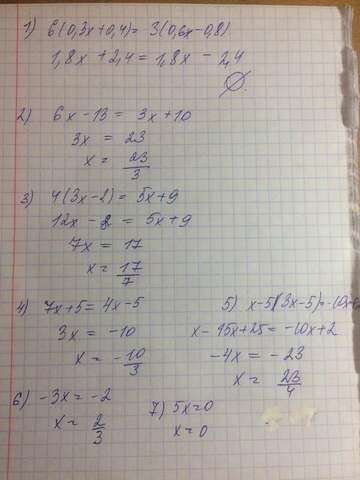 1) 6(0,3x+0,4) = 3(0,6x-0,8)
1,8x + 2,4 = 1,8x - 2,4
∅.
2) 6x - 13 = 3x + 10
3x = 23
x = 23/3
3) 4(3x-2) = 5x+9
12x - 8 = 5x+9
7x = 17
x = 17/7
4) 7x+5 = 4x-5
3x = -10
x = -10/3
5) x-5(3x-5)=
x - 15x+25 = -10x+2
-4x = -23
x = 23/4
6) -3x = -2
x = 2/3
7) 5x=0
x=0